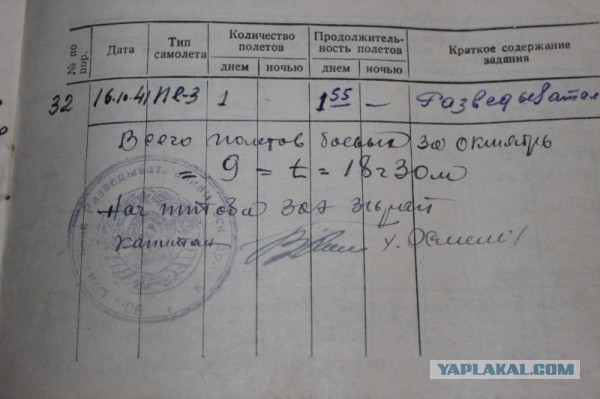 № по пор. Дата Тип самолета Количество полетов Продолжительность полетов Краткое содержание задания
днем ночью днем ночью
32 16.10.41 Пе-3 1 1 55 — Разведыватель
Всего полетов боевых за октябрь
" 9 = t = 18ч30м
Нач штаба
капитан
YAPLAKAL.COM